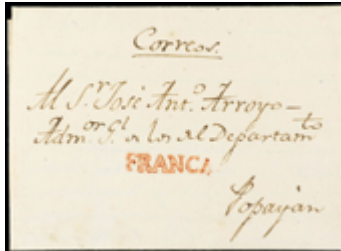 Correos.
Al S.r José Ant.o Arroyo
Adm.or G.l de los del Departam.to
FRANCA
Popayán